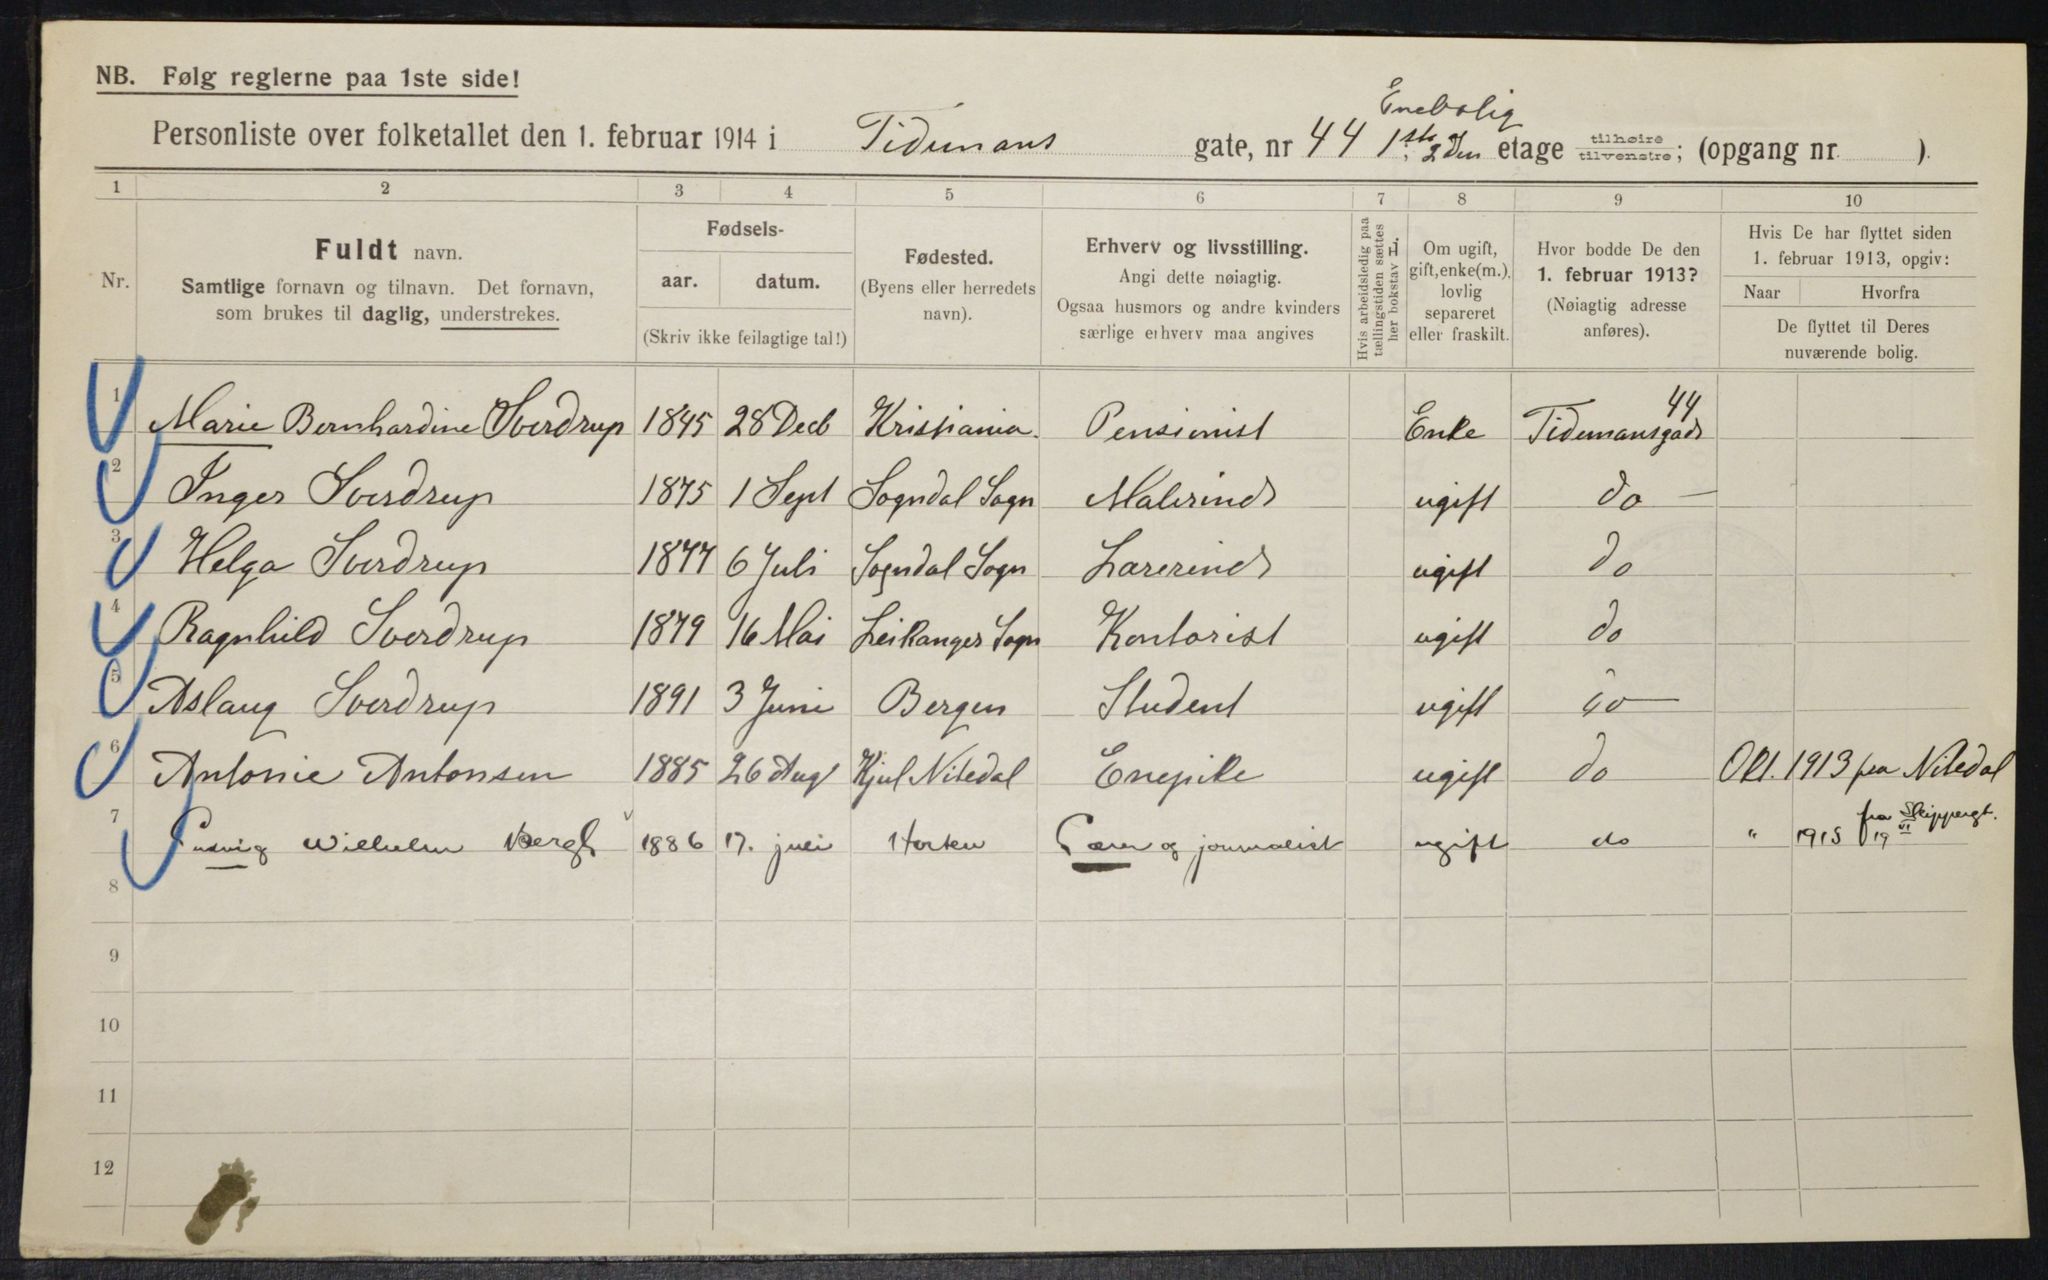 NB. Følg reglerne paa 1ste side!
Enebolig
Personliste over folketallet den 1. februar 1914 i Tidemans gate, nr 44 1ste, 2den etage tilhøire tilvenstre; (opgang nr. ).
1 2 3 4 5 6 7 8 9 10
Nr.
Fuldt navn.
Samtlige fornavn og tilnavn. Det fornavn,
som brukes til daglig, understrekes.
Fødsels-
aar. datum.
(Skriv ikke feilagtige tal!)
Fødested.
(Byens eller herredets
navn).
Erhverv og livsstilling.
Angi dette nøiagtig.
Ogsaa husmors og andre kvinders
særlige erhverv maa angives
Hvis arbeidsledig paa
tællingstiden sættes
her bokstav L.
Om ugift,
gift, enke(m.),
lovlig
separeret
eller fraskilt.
Hvor bodde De den
1. februar 1913?
(Nøiagtig adresse
anføres).
Hvis De har flyttet siden
1. februar 1913, opgiv:
Naar Hvorfra
De flyttet til Deres
nuværende bolig.
1 Marie Bernhardine Sverdrup 1845 28 Decb Kristiania. Pensionist Enke Tidemansgade 44
2 Inger Sverdrup 1875 1 Sept Sogndal Sogn Malerinde ugift do
3 Helga Sverdrup 1877 6 Juli Sogndal Sogn Lærerinde ugift do
4 Ragnhild Sverdrup 1879 16 Mai Leikanger Sogn Kontorist ugift do
5 Aslaug Sverdrup 1891 3 Juni Bergen Student ugift do
6 Antonie Antonsen 1885 26 Aug Kjul Nitedal Enepike ugift do Okt. 1913 fra Nitedal
7 Ludvig Wilhelm Bergh 1886 17. juli Horten Lærer og journalist ugift do " 1913 fra Skippergt. 19 VI
8
9
10
11
12